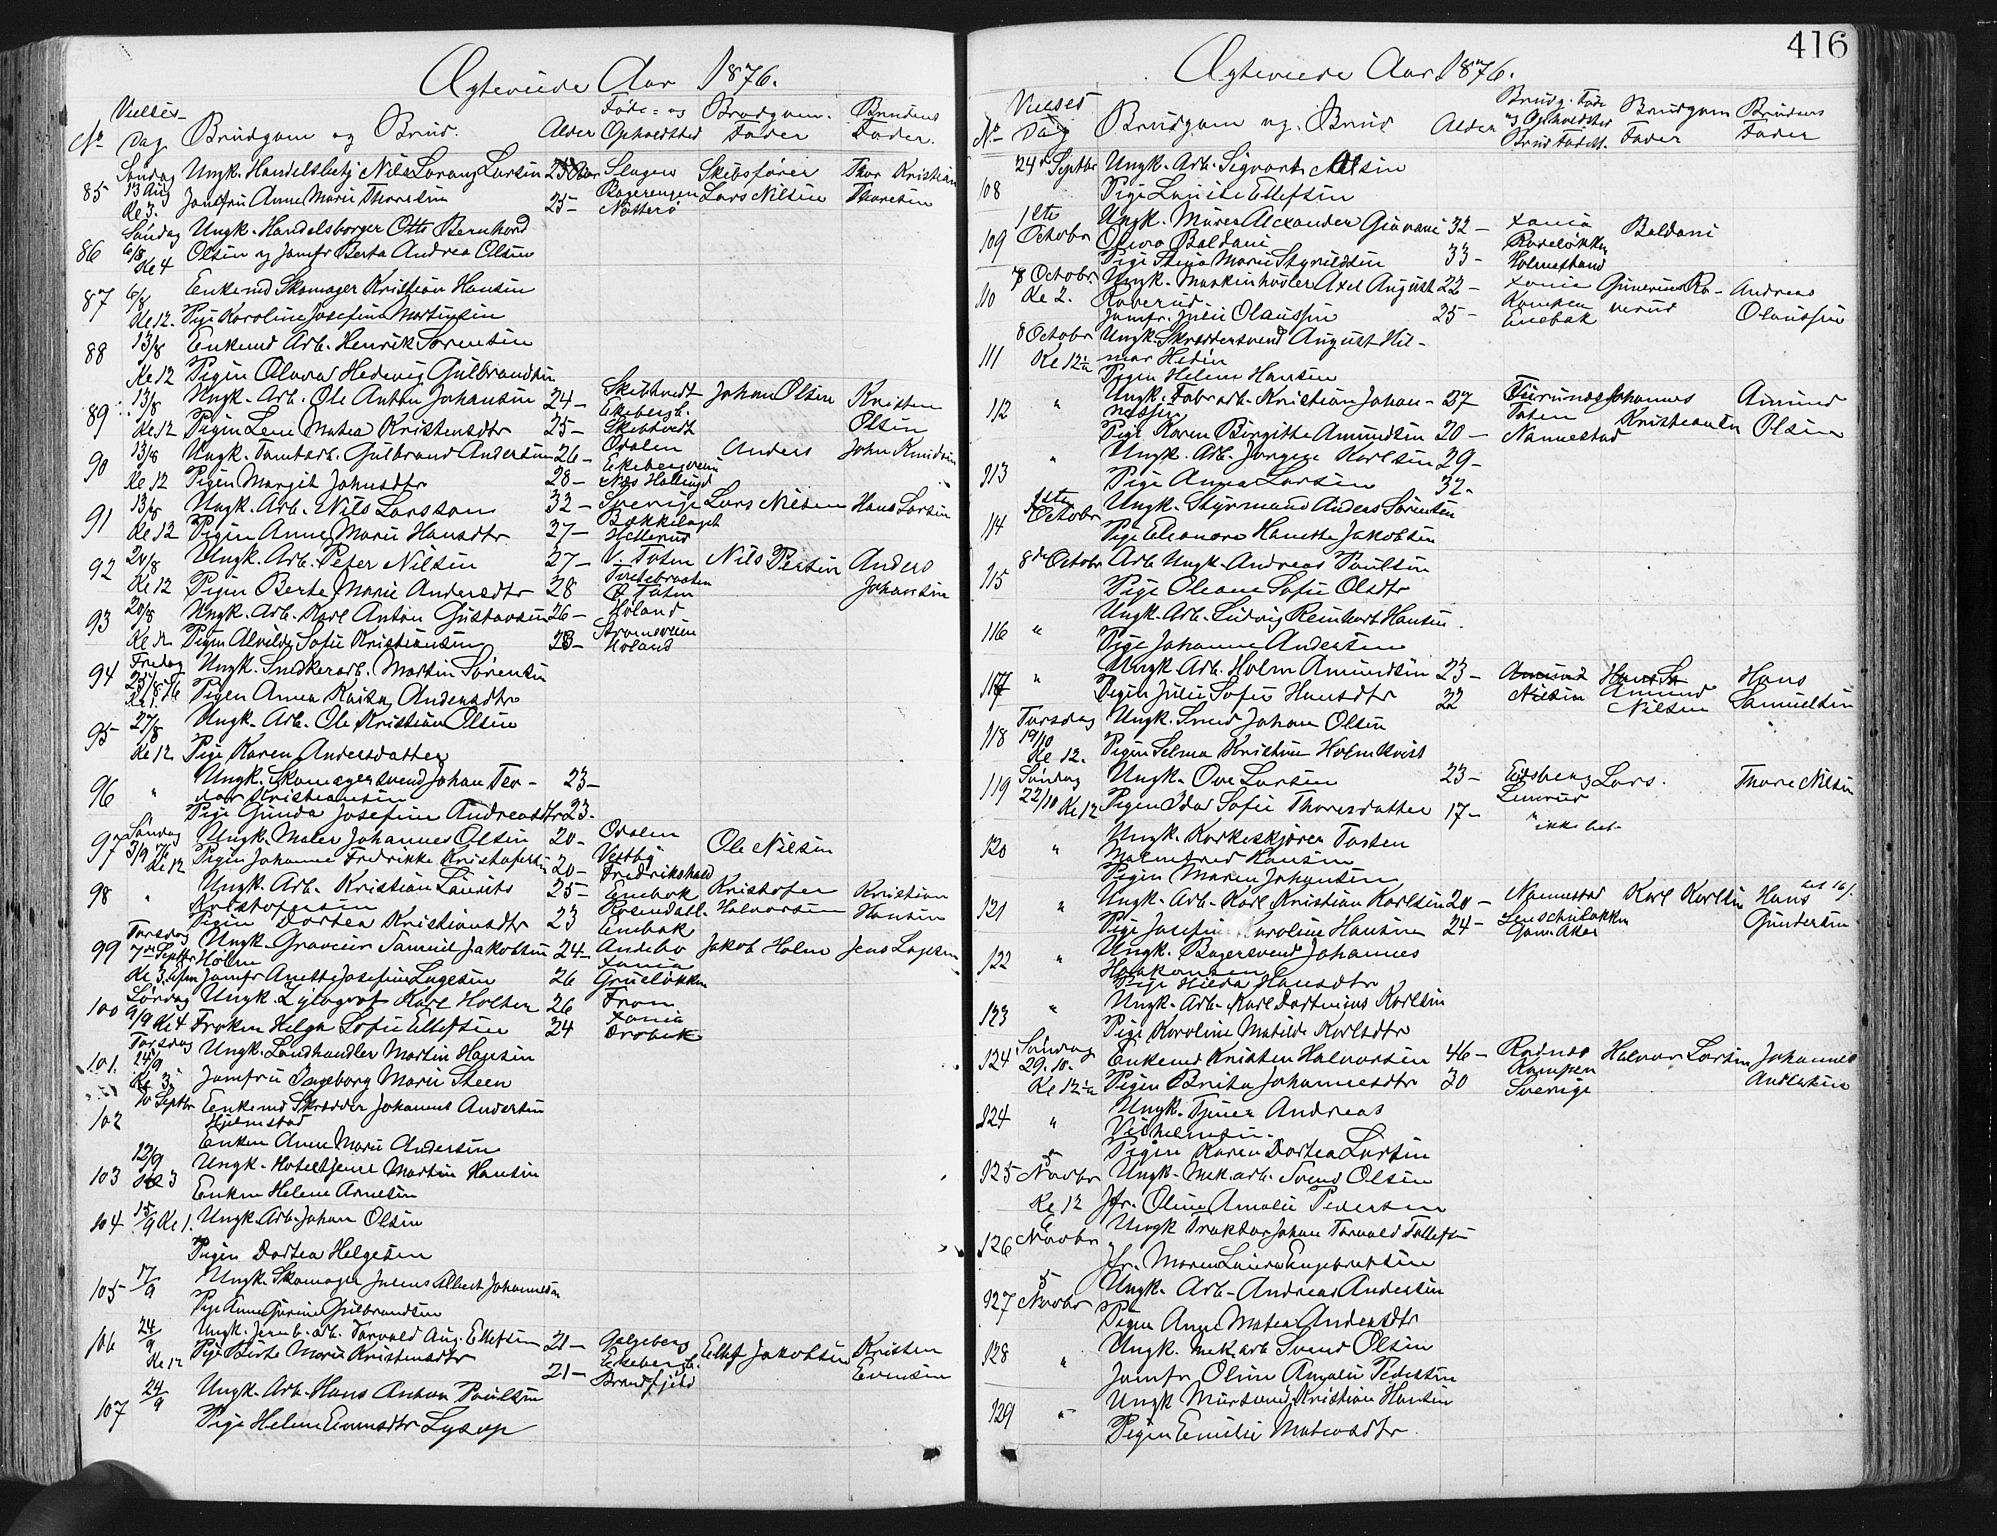 Ægteviede Aar 1876.
Vielses- Føde- og Brudgom. Brudens
No Dag. Brudgom og Brud. Alder Opholdsted Fader Fader.
Søndag Ungk. Handelsbetj Nils Larsen 25 Slagen Skibsfører Thor Kristian
85 13 Aug Jomfru Anne Marie Thoresen 25- Nøtterø Lars Nilsen Thoresen
Kl 3.
Søndag Ungk. Handelsborger Otto Bernhard
86 6/8 Olsen og Jomfr Berta Andrea Olsen
Kl 4
87 6/8 Enkemd Skomager Kristian Hansen
Kl 12. Pige Karoline Josefine Martinsen
88 13/8 Enkemd Arb. Henrik Sørensen
Kl 12 Pigen Olava Hedevig Gulbrandsen
89 13/8 Ungk. Arb. Ole Anton Johansen 24- Skibtvedt Johan Olsen Kristen
Kl 12 Pigen Lene Matea Kristensdtr 25- Ekeberg. Skibtvedt Olsen
90 13/8 Ungk. Tomtarb. Gulbrand Andersen 26- Odalen Anders John Knudsen
Kl 12 Pigen Margit Johnsdtr 28- Ekebergveien Næs Hallingd
91 13/8 Ungk. Arb. Nils Larsson 32- Sverige Lars Nilsen Hans Larsen
Kl 12 Pigen Anne Marie Hansdtr 37- Bækkelaget
92 20/8 Ungk. Arb. Peter Nilsen 27- V. Toten Nils Persen Anders
Kl 12 Pigen Berte Marie Andersdtr 28 Ø Toten Johansen
93 20/8 Ungk. Arb. Karl Anton Gustavsen 26- Høland
Kl 12 Pigen Alvilde Sofie Kristiansen 23- Strømsveien Høland
94 Fredag Ungk. Snedkerarb. Martin Sørensen
25/8 76 Pigen Anna Kaisa Andersdtr
Kl 1.
95 27/8 Ungk. Arb. Ole Kristian Olsen
Kl 12 Pige Karen Andersdatter
96 " Ungk. Skomagersvend Johan Teo- 23-
dor Kristiansen
Pige Gunda Josefine Andreasdtr 23.
97 Søndag Ungk. Maler Johannes Olsen 20- Odalen Ole Nilsen
3/9 76 Pigen Johanne Fredrikke Kristofersen 20- Vestby Fredrikshald
Kl 12
98 " Ungk. Arb. Kristian Laurits 25- Enebak Kristofer Kristian
Kristofersen Rosendall. Halvorsen Hansen
Pigen Dortea Kristiansdtr 23 Enebak
99 Torsdag Ungk. Graveur Samuel Jakobsen 24- Andebo Jakob Holm Jens Lagesen
7de Septbr Holm Xania
Kl 3. Eftm Jomfr Anette Josefine Lagesen 26 Grüsløkken
100 Lørdag Ungk. Xylograf Karl Holter 26 Fron
9/9 Kl 4 Frøken Helga Sofie Ellefsen 24 Xania Drøbak
101. Torsdag Ungk. Landhandler Martin Hansen
14/9 Kl 3. Jomfru Ingeborg Marie Steen
10 Septbr Enkemd Skrædder Johannes Andersen
102 Hjelmstad
Enken Anne Marie Andersen
103 12/9 Ungk. Hoteltjener Martin Hansen
Kl 3 Enken Helene Arnesen
104 15/9 Kl 1. Ungk. Arb. Johan Olsen
Pigen Dortea Helgesen
105 17/9 Ungk. Skomager Julius Albert Johannesen
Pige Anne Gurine Gulbrandsen
106 24/9 Ungk. Jernb. arb. Torvald Aug. Ellefsen 21- Galgeberg Ellef Jakobsen Kristen
Kl 12 Pige Berte Marie Kristensdtr 21- Ekeberg Evensen
107 24/9 Ungk. Arb. Hans Anton Poulsen
Pige Helene Evensdtr Lysop
416
Ægteviede Aar 1876.
Vielses Brudg. Føde Brudgom Brudens
No Dag Brudgom og Brud Alder og Opholdsted Fader Fader
Brud Fødest.
24de Septbr Ungk. Arb. Sigvart Olsen
108 Pige Laurite Ellefsen
109 1ste Octobr Ungk. Murer Alexander Giovani 32- Xania Baldani
Baldani Rodeløkken
Pige Stina Marie Skyrildsen 33- Holmestrand
110 8 Octobr Ungk. Maskinhøvler Axel August 22- Xania Gunerius Ro- Andreas
Kl 2. Roverud Kampen verud Olaussen
Jomfr. Julie Olaussen 25- Enebak
8 Octobr Ungk. Skræddersvend August Hil-
111 Kl 12 1/2 mar Hedin
Pigen Helene Hansen
112 " Ungk. Fabrarb. Kristian Johan- 27 Johannes Amund
nessen Toten Kristiansen Olsen
Pige Karen Birgitte Amundsen 20- Nannestad
113 " Ungk. Arb. Jørgen Karlsen 29-
Pige Anna Larsen 32-
114 1ste Octobr Ungk. Styrmand Anders Sørensen
Pige Eleonora Hanette Jakobsen
115 8de Octobr Arb Ungk. Andreas Poulsen
Pige Oleane Sofie Olsdtr
116 " Ungk. Arb. Ludvig Reinhart Hansen.
Pige Johanne Andersen
117 " Ungk. Arb. Holm Amundsen 23- Amund Nilsen Hans
Pigen Julie Sofie Hansdtr 22 Amund Nilsen Samuelsen
118 Torsdag Ungk. Smed Johan Olsen
19/10 Kl 12. Pigen Selma Kristine Holmkvist
119 Søndag Ungk. Ove Larsen 23- Eidsberg Lars. Thore Nilsen
22/10 Kl 12 Pigen Ida Sofie Thoresdatter 17- Lenrud
" ikke bet.
120 " Ungk. Korkeskjører Torsten
Malmfred Hansen
Pigen Maren Johansen
121 " Ungk. Arb. Karl Kristian Karlsen 20- Nannestad Karl Karlsen Hans
Pige Josefine Karoline Hansen 24- Aker Gundersen
122 " Ungk. Bagersvend Johannes
Haakonsen
Pige Hilda Hansdtr
123 " Ungk. Arb. Karl Dortenius Karlsen
Pige Karoline Matilde Karlsdtr
124 Søndag Enkemd Kristen Halvorsen 46- Rødnes Halvor Larsen Johannes
29.10. Kampen Andersen
Kl 12 1/2 Pigen Brita Johannesdtr 30 Sverige
124 " Ungk. Tjener Andreas
Vilhelmsen.
Pigen Karen Dortea Larsen
125 5 Novbr Ungk. Mek. arb. Svend Olsen
Kl 12 Jfr. Oline Amalie Pedersen
126 6 Novbr Ungk Traktør Johan Torvald Tollefsen
Jfr. Maren Laura Engebretsen
127 5 Novbr Ungk. Arb. Andreas Andersen
Pigen Anne Matea Andersdtr
128 " Ungk. Mek. arb Svend Olsen
Jomfr Oline Amalie Pedersen
129 " Ungk Mursvend Kristian Hansen
Pigen Emilie Mateasdtr.